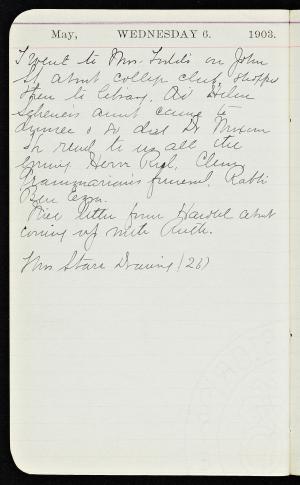 May, WEDNESDAY 6. 1903.
I went to Mrs. on John
St. about college club, shopped
then to library. Helen
aunt came to
dinner & so did Dr
He read to us all the
evening Herve Riel, Cleon,
Grammarian's funeral, Rabbi
Ben Ezra.
Nice letter from Harold about
coming up with Ruth.
Mrs Starr Drawing (26)